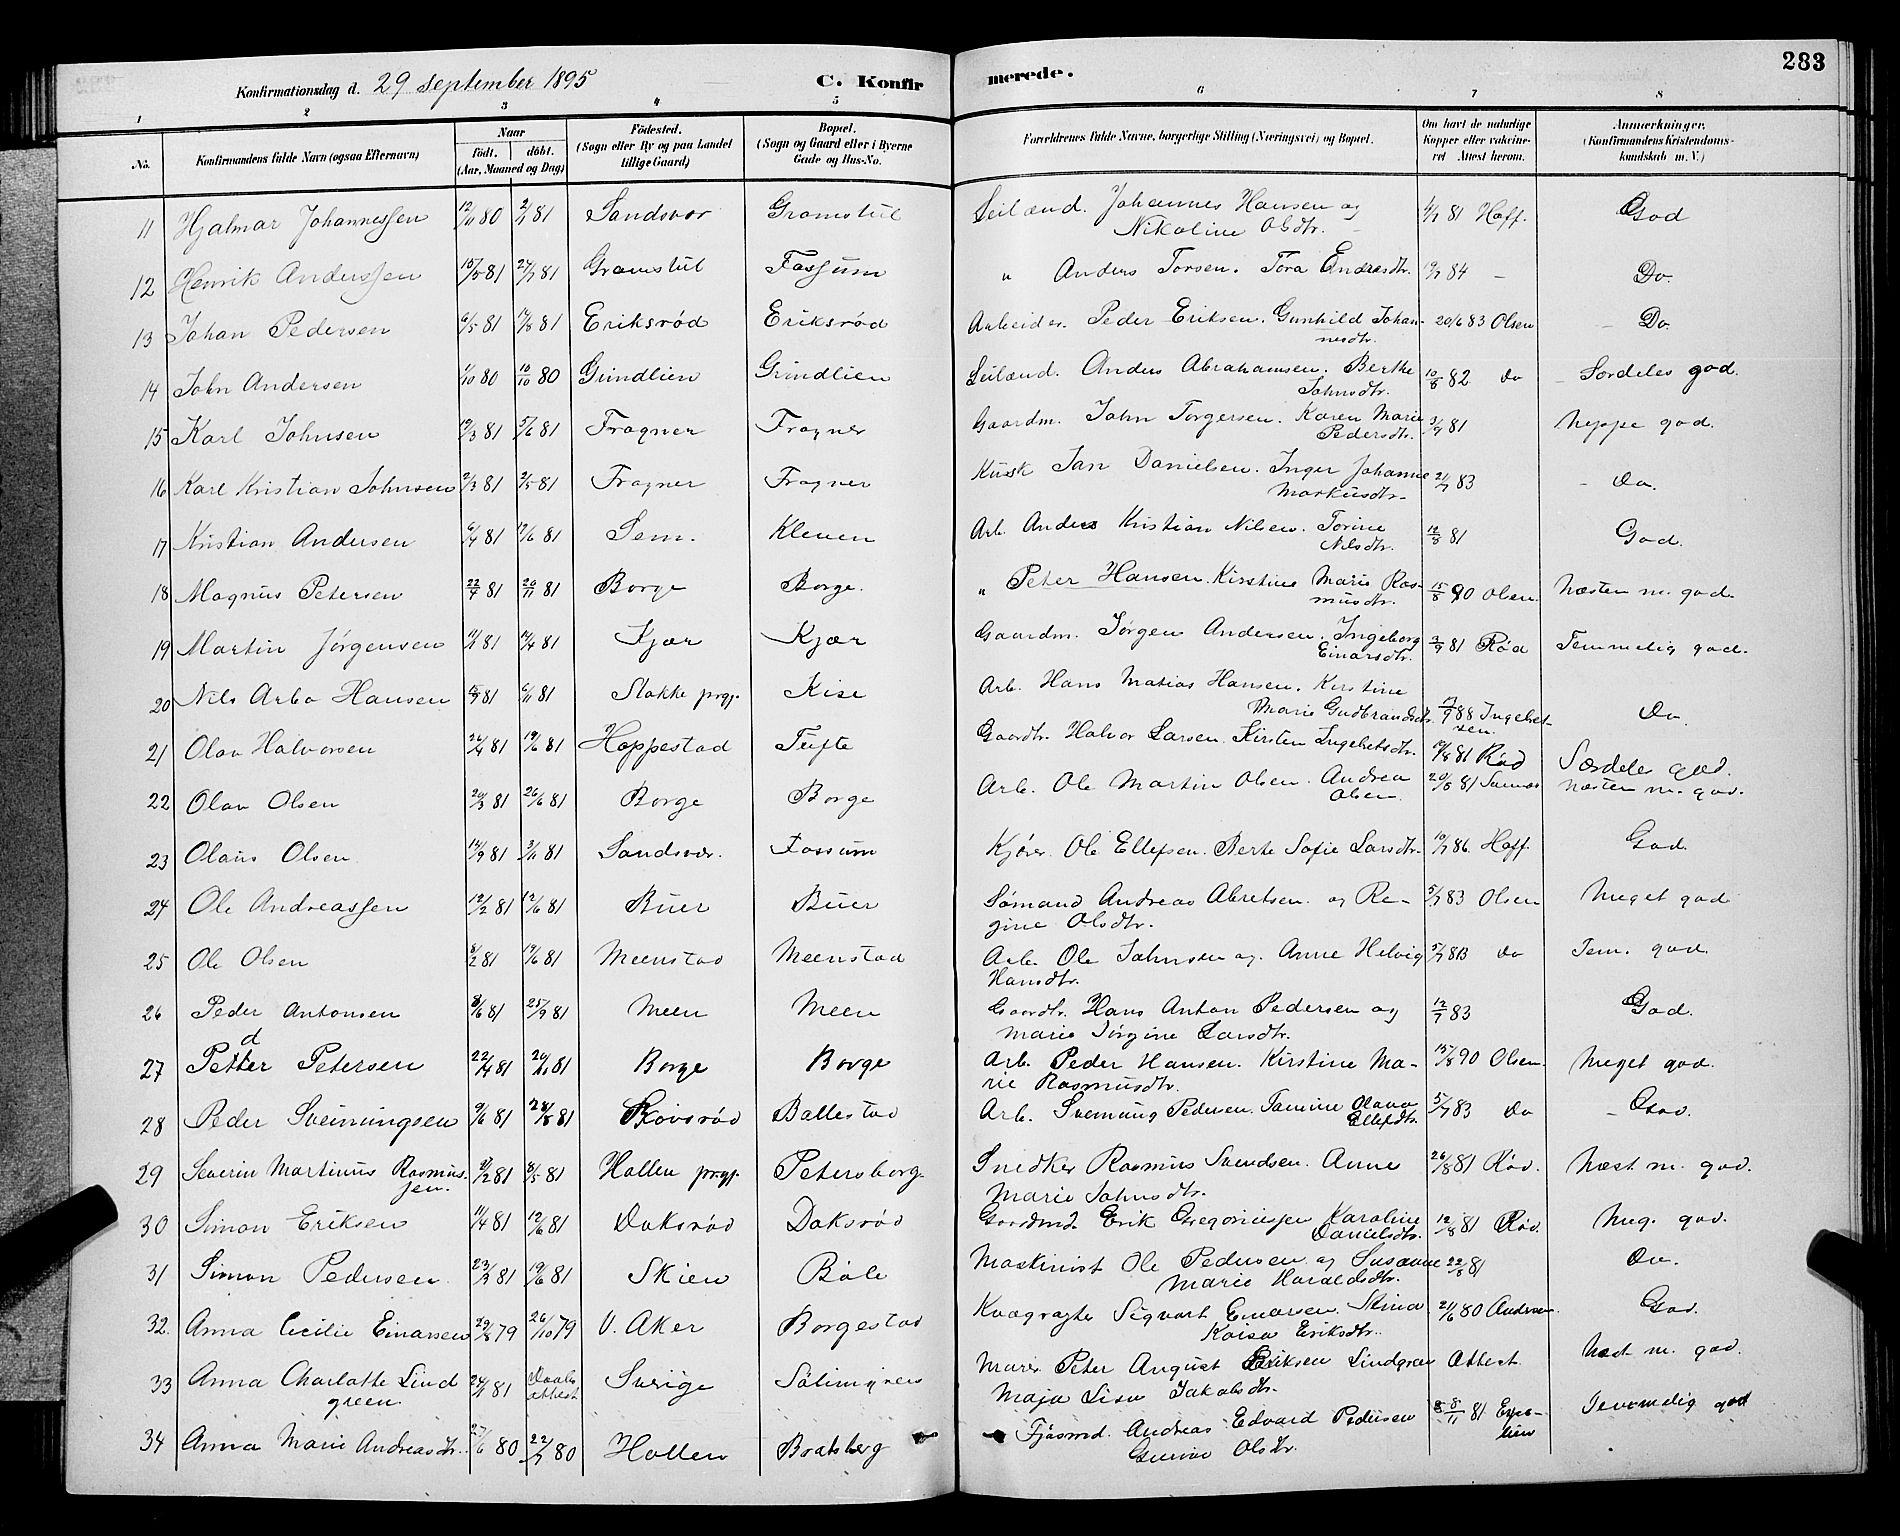 283
Konfirmationsdag d. 29 september 1895
C. Konfir
merede.
1 2 3 4 5 6 7 8
No.
Konfirmandens fulde Navn (ogsaa Efternavn)
Naar
födt. döbt.
(Aar, Maaned og Dag)
Födested.
(Sogn eller By og paa Landet
tillige Gaard)
Bopæl.
(Sogn og Gaard eller i Byerne
Gade og Hus-No.
Forældrenes fulde Navne, borgerlige Stilling (Næringsvei) og Bopæl.
Om havt de naturlige
Kopper eller vakcine-
ret Attest herom.
Anmærkninger.
(Konfirmandens Kristendoms-
kundskab m. V.)
11 Hjalmar Johannessen 12/11 80 2/1 81 Sandsvær Gromstul Leilænd. Johannes Hansen og 4/7 81 Hoff. God
Nikoline Olsdtr.
12 Henrik Anderssen 15/5 81 24/7 81 Gromstul Fossum " Anders Torsen. Tora Endresdtr. 19/7 84 – Do.
13 Johan Pedersen 6/5 81 14/8 81 Eriksrød Eriksrød Arbeider. Peder Eriksen. Gunhild Johan- 20/6 83 Olsen – Do.
nesdtr.
14 John Andersen 1/10 80 10/10 80 Grindlien Grindlien Leilænd. Anders Abrahamsen. Berthe 10/8 82 do – Særdeles god.
Johnsdtr.
15 Karl Johnsen 19/3 81 5/6 81 Frogner Frogner Gaardm. John Torgersen. Karen Marie 3/9 81 neppe god.
Pedersdtr.
16 Karl Kristian Johnsen 2/3 81 2/5 81 Frogner Frogner Kusk Jan Danielsen. Inger Johanne 21/7 83 – do.
Markusdtr.
17 Kristian Andersen 6/4 81 12/6 81 Sem. Kleven Arb. Anders Kristian Nilsen. Torine 12/8 81 God.
Nilsdtr.
18 Magnus Petersen 22/4 81 20/11 81 Borge Borge. " Peter Hansen. Kirstine Marie Ras- 15/8 90 Olsen. Næsten m. god.
musdtr.
19 Martin Jørgensen 11/1 81 14/4 81 Kjær Kjær Gaardm. Jørgen Andersen. Ingeborg 3/9 81 Rød Temmelig god.
Einarsdtr.
20 Nils Arbo Hansen 81 6/11 81 Slakke prgj. Kise Arb. Hans Matias Hansen. Kirstine
Marie Gudbrandsdtr. 88 Ingebret- do.
sen.
21 Olav Halvorsen 26/4 81 19/6 81 Hoppestad Tufte Gaardbr. Halvor Larsen. Kirsten Ingebretsdtr. 81 Rød Særdeles god.
22 Olav Olsen 20/3 81 26/6 81 Borge Borge Arb. Ole Martin Olsen. Andrea 20/8 81 næsten m. god.
Olsen.
23 Olaus Olsen 14/9 81 3/11 81 Sandsvær. Fossum Kjører. Ole Ellefsen. Berte Sofie Larsdtr. 10/7 86. Hoff. God.
24 Ole Andreassen 12/2 81 12/6 81 Buer Buer Sømand Andreas Abretsen og Re- 5/7 83 Olsen Meget god
gine Olsdtr.
25 Ole Olsen 8/2 81 19/6 81 Meenstad Meenstad Arb. Ole Johnsen og Anne Helvig 5/7 83 do Tem. god.
Hansdtr.
26 Peder Antonsen 8/6 81 25/9 81 Meen Meen Gaardbr. Hans Anton Pedersen og 12/7 83 God.
Marie Jørgine Larsdtr.
d
27 Petter Petersen 22/4 81 20/11 81 Borge Borge Arb. Peder Hansen. Kirstine Ma- 15/8 90 Olsen. Meget god.
rie Rasmusdtr.
28 Peder Sveinungsen 9/6 81 28/8 81 Skovsrød Ballestad Arb. Sveinung Pedersen. Tomine Olava 5/7 83 do – God.
Ellefsdtr.
29 Severin Martinus Rasmus- 81 8/5 81 Hollen prgj. Petersborg Snedker Rasmus Svendsen. Anne 26/8 81 Rød. Næst m. god.
sen. Marie Johnsdtr.
30 Simon Eriksen 11/4 81 12/6 81 Doksrød Doksrød Gaardmd. Erik Gregoriussen Karoline 12/8 81 Rød. Meg. god.
Danielsdtr.
31 Simon Pedersen 23/3 81 19/6 81 Skien Bøle Maskinist Ole Pedersen og Susanne 22/8 81 Do.
Marie Haraldsdtr.
32. Anna Cecilie Einarsen 29/8 79 26/10 79 V. Aker Borgestad Kvægrøgter Sigvart Einarsen. Stina 21/6 80 Andersen. God.
Kaisa Eriksdtr.
33 Anna Charlotte Lind 24/1 81 Daabs Sverige Murer Peter August Eriksen Lindgren Attest. Næst m. god.
green. attest Maja Lisa Jakobsdtr.
34 Anna Marie Andreasdtr. 80 22/7 80 Hollen Bratsberg Fjøsmd. Andreas Edvard Pedersen 8/11 81 Temmelig god
Olsdtr.